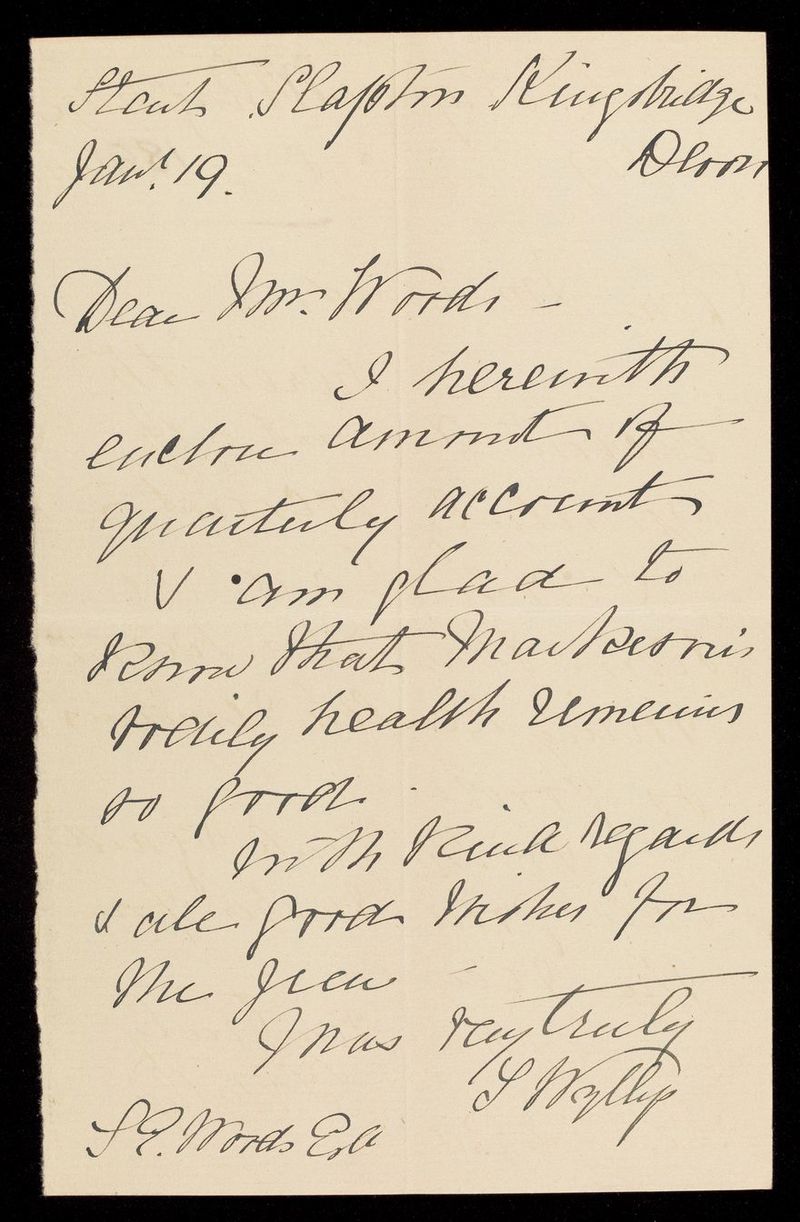 Start Slapton Kingsbridge
Jany. 19. Devon
Dear Mr. Woods –
I herewith
enclose amount of
quarterly account
& am glad to
know that
bodily health remains
so good.
With kind regards
& all good wishes for
the year
Yours very truly
S E. Woods Esq